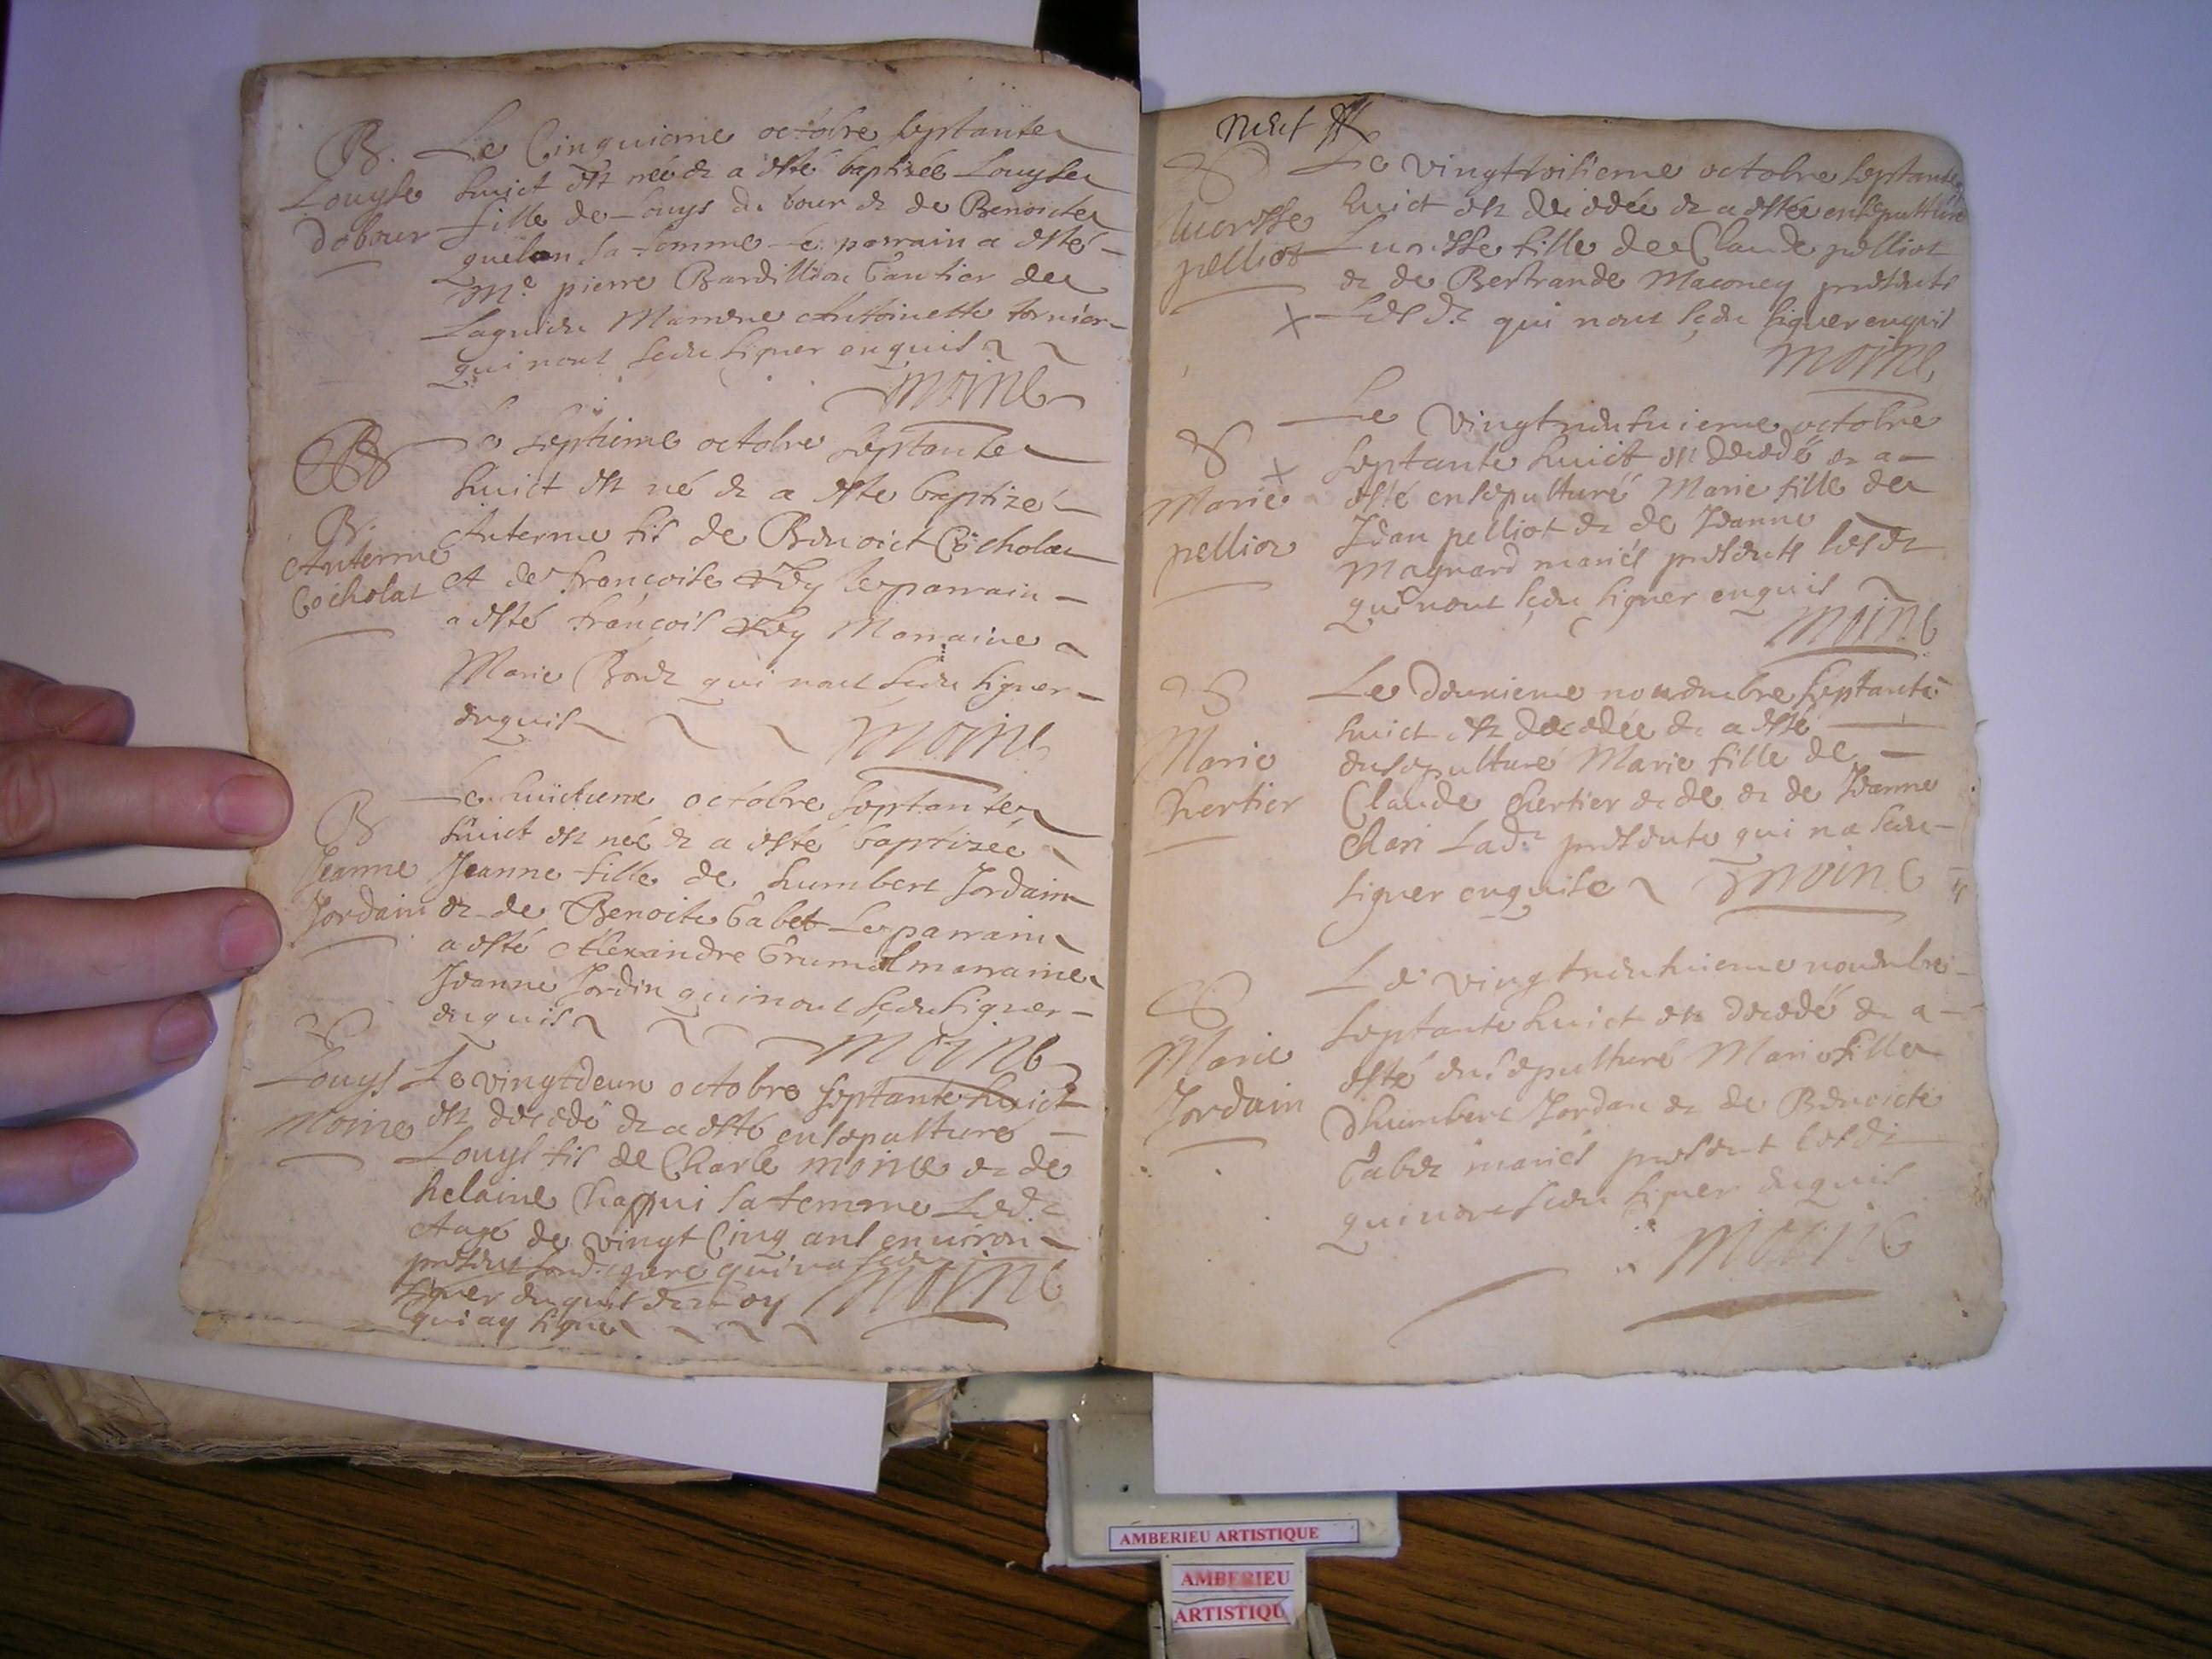 B.
Louyse
Dobour
Le Cinquieme octobre septante
huict est née & a esté baptizée Louyse
fille de Louys du bour & de Benoicte
quelon sa femme le parrain a esté
Me pierre Bardillion Cantier de
Lagnieu Marrene Anthoinette tornier
qui nont sceu signer enquis
Moine
B.
Anterme
Cocholat
Le septieme octobre septante
huict est né & a esté baptizé
Anterme fis de Benoict Cocholat
et de françoise le parrain
a esté françois Marraine
Marie Bondz qui nont sceu signer
enquis
Moine
B
Jeanne
Jordain
Le huictieme octobre septante
huict est née & a esté baptizée
Jeanne fille de humbert Jordain
& de Benoite Gabet Le parrain
a esté Alexandre Grumel marraine
Jeanne Jordin qui nont sceu signer
enquis
Moine
Louys
Moine
Le vingtdeux octobre septante huict
est decedé & a esté ensepulturé
Louys fis de Charle moine & de
helaine Chappui sa femme Led.
Aagé de vingt Cinq ans environ
present sond. pere qui na sceu
signer enquis & moy
qui ay signé
Moine
neuf
Lucresse
pelliot
Le vingttroisieme octobre septante
huict est decedée & a estée ensepulturée
Lucresse fille de Claude pelliot
& de Bertrande Maconey presents
Lesd. qui nont sceu signer enquis
Moine
Marie
pelliot
Le vingtneufuieme octobre
septante huict est decedé & a
esté ensepulturé Marie fille de
Jean pelliot & de Jeanne
Magnard mariés presents lesd.
qui nont sceu signer enquis
Moine
Marie
Chertier
Le Deuxieme nouembre septante
huict est decedée & a esté
ensepulturé Marie fille de
Claude Chertier & de & de Jeanne
Chari Lad. presente qui na sceu
signer enquise Moine
Marie
Jordain
Le vingtneufuieme nouembre
septante huict est decedé & a
esté ensepulturé Marie fille
Dhumbert Jordan & de Benoicte
Gabet mariés present lesd.
qui nont sceu signer enquis
Moine
AMBERIEU ARTISTIQUE
AMBERIEU
ARTISTIQU